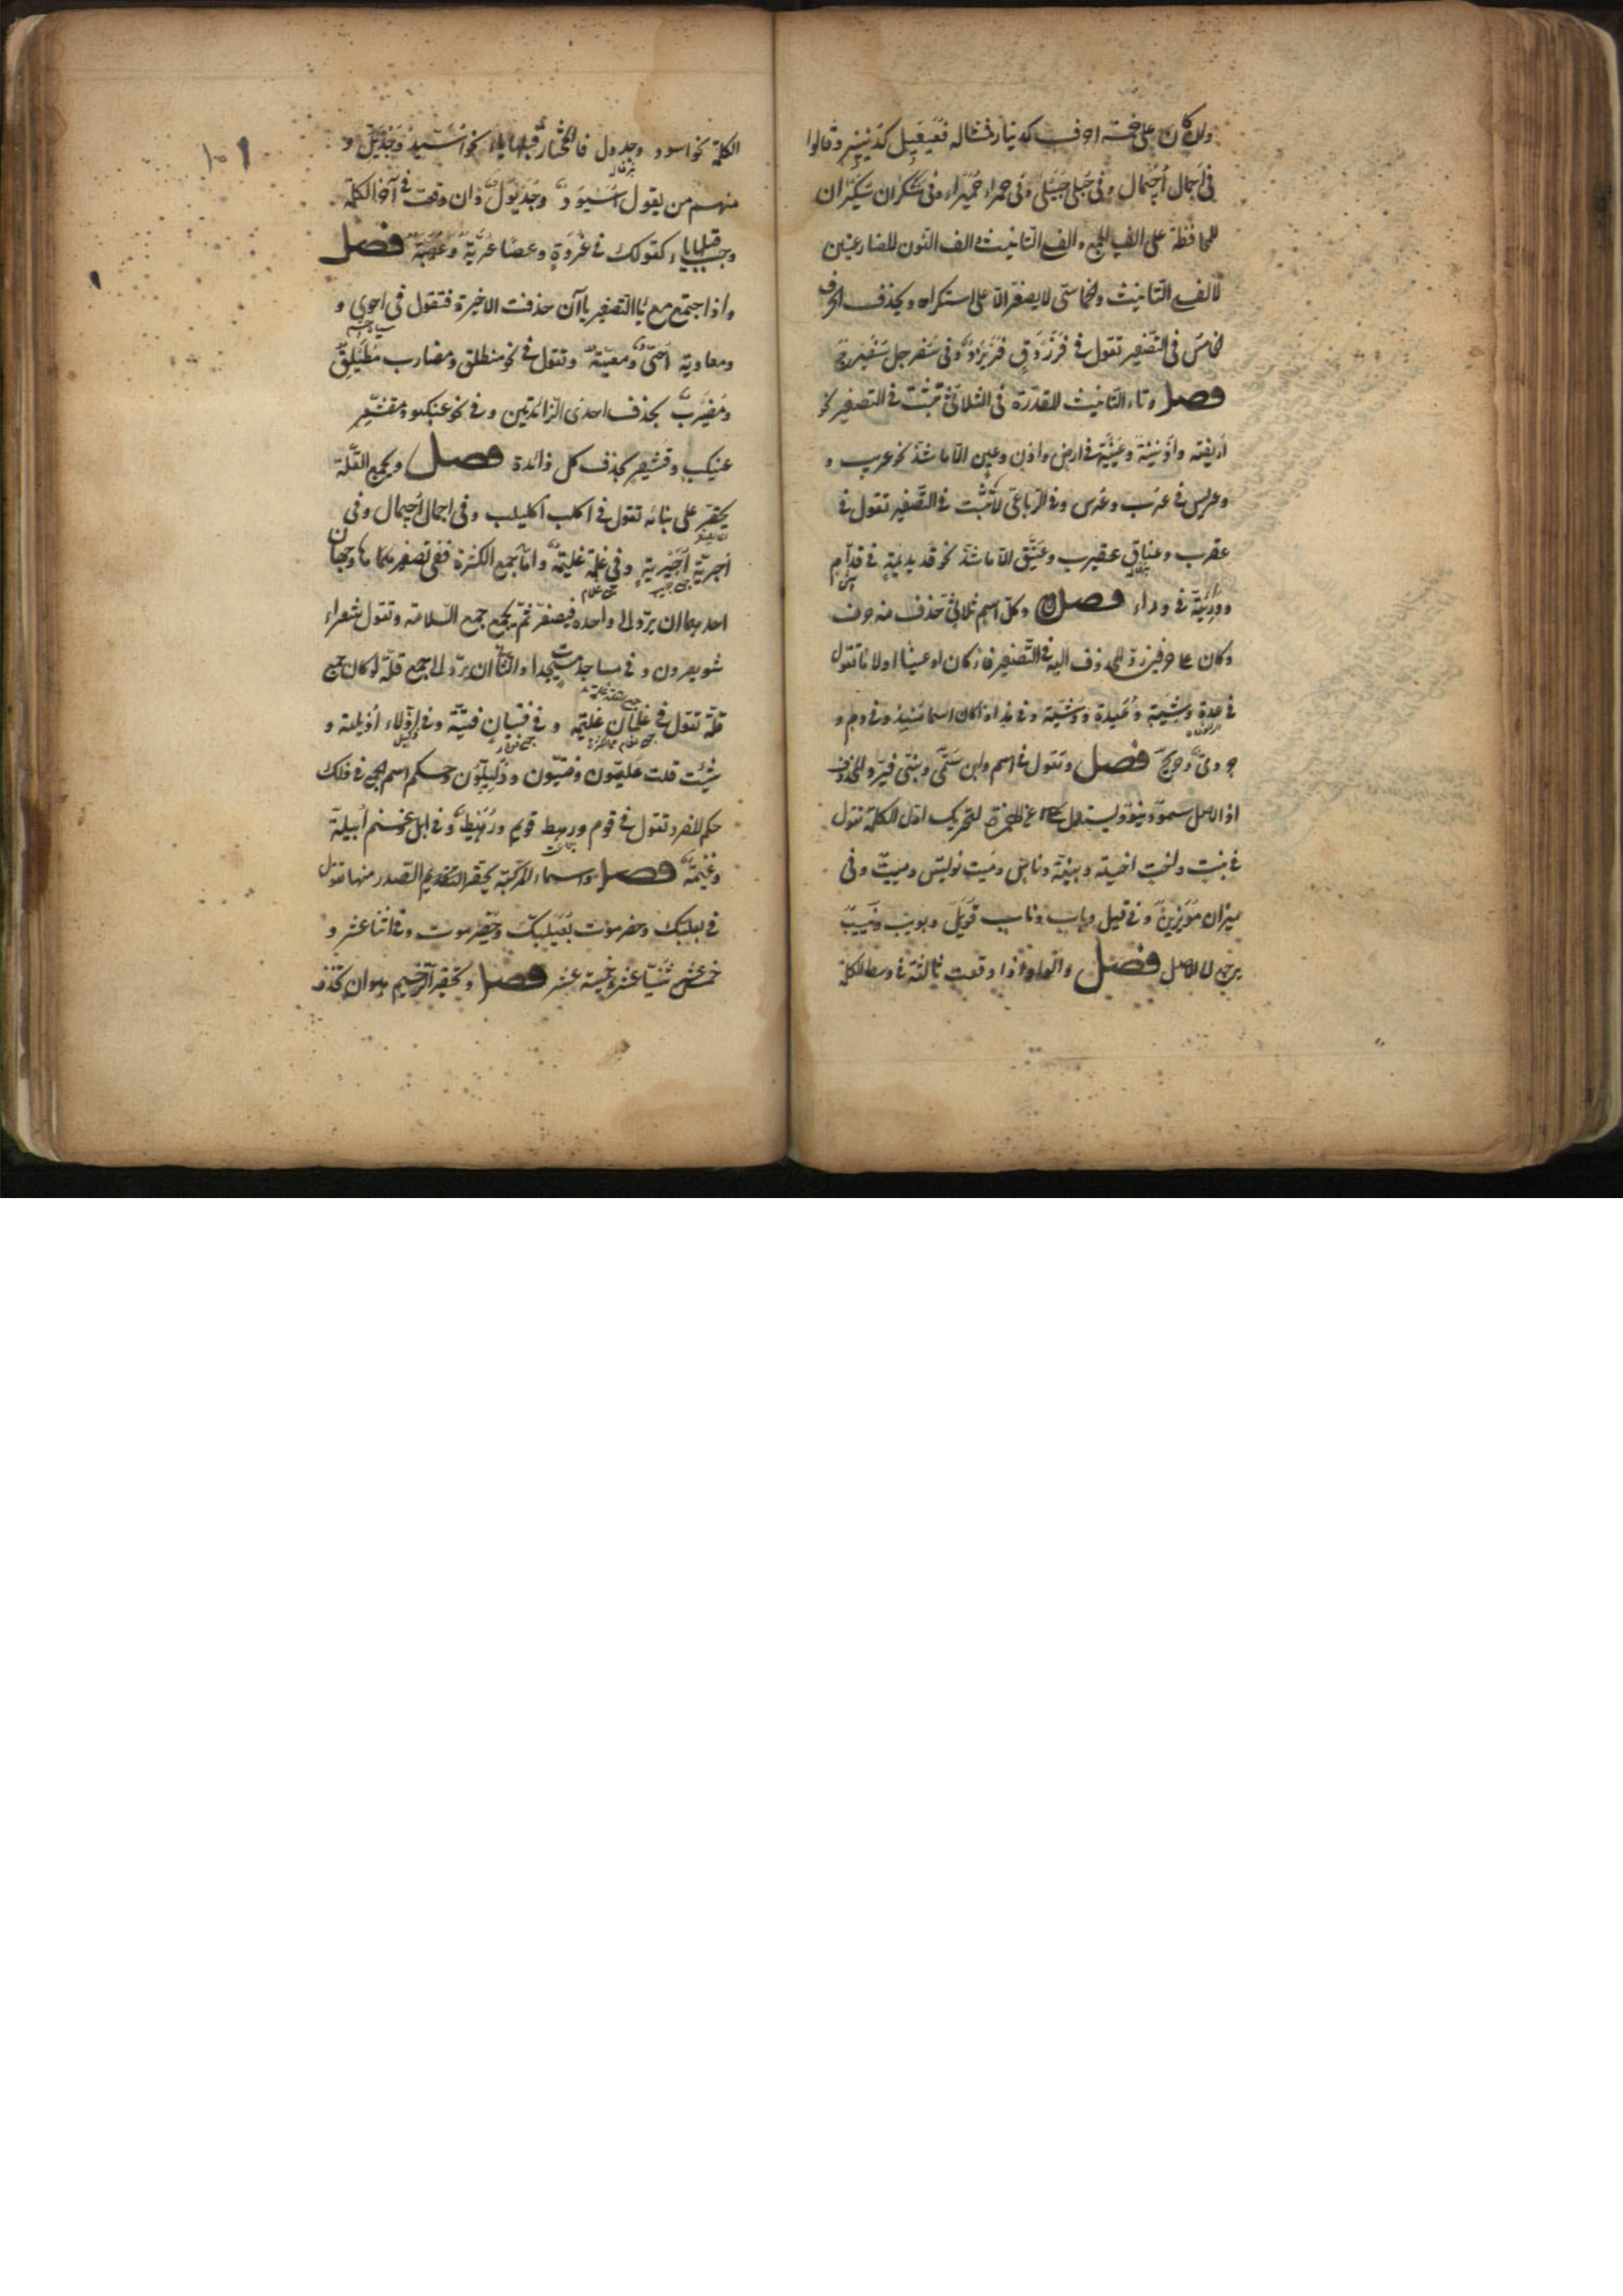 وان كان على خمسة احرف كدينار فمثاله فُعَيْعِيل كدُنَيْنِير وقالوا
فى اَجمال اُجَيْمال وفى حُبلى حُبَيْلى وفى حمراء حُمَيراء وفى سَكران سُكَيران
للمحافظة على الف الجمع والف التانيث والف النون المضارعتين
لالف التّانيث والخماسى لا يصغّر الّا على استكراه ويحذف الحرف
الخامس فى التّصغير تقول فى فَرَزْدَقٍ فُرَيْزِدٌ وفى سَفرجل سُفَيْرِجٌ
فصل وتاء التّانيث المقدّرة فى الثلاثى تثبت فى التصغير نحو
اُرَيْضَة واُذَيْنَة وعُيَيْنَة فى ارض واذن وعين الّا ما شذّ نحو عريب و
وعريس فى عرب وعرس وفى الرّباعى لا تثبت فى التّصغير تقول فى
عقرب وعناق عقيرب وعُنَيِّق الّا ما شذّ نحو قديديمة فى قدّام
ووُرَيِّئَة فى وراء فصل وكلّ اسم ثلاثى حذف منه حرف
وكان على حرفين ردّ المحذوف اليه فى التّصغير فاء كان او عينا او لاما تقول
فى عدة وشية وُعَيدة ووُشَيّة وفى مذ اذا كان اسما مُنيذ وفى دم و
حر دمىّ وحريح فصل وتقول فى اسم وابن سُمَىّ وبُنَىّ فيردّ المحذوف
اذ الاصل سمو وبنو ويستغنى عن الهمزة لتحريك اول الكلمة تقول
فى بنت واخت اخيّة وبنيّة وناس وميت نويس ومييت وفى
ميزان مُوَيزين وفى قيل وباب وناب قُوَيل وبويب ونُيَيب
يرجع الى الاصل فصل والواو اذا وقعت ثالثة فى وسط الكلمة
١٠١
الكلمة نحو اسود وجدول فالمختار قلبها ياء نحو اُسَيِّد وجُدَيِّل و
منهم من يقول اُسَيوِدٌ وجُدَيْوِلٌ وان وقعت فى آخر الكلمة
وجب قلبها ياء كقولك فى عُرْوَةٍ وعصًا عُرَيَّة وعُصَيَّة فصل
واذا اجتمع مع ياء التّصغير ياآن حذفت الاخيرة فتقول فى احوى و
ومعاوية اُحَىّ ومُعَيّة وتقول فى نحو منطلق ومضارب مُطَيلِقٌ
ومُضَيرِبٌ بحذف احدى الزّائدتين وفى نحو عنكبوت ومقشعر
عنيكب وقشيعر بحذف كل زائدة فصل وجمع القلّة
يحقّر على بنائه تقول فى اكلب اكيلب وفى اجمال اُجَيمال وفى
اَجربة اُجَيْربة وفى غلمة غليمة وامّا جمع الكثرة ففى تصغيرها وجهان
احدهما ان يردّ الى واحده فيصغّر ثمّ يجمع جمع السّلامة وتقول شعراء
شويعرون وفى مساجد مسيجدات والثّانى ان يردّ الى جمع قلّة ان كان جمع
قلّة تقول فى غلمان غليمة وفى فتيان فتيّة وفى اذلّاء اُذيلة و
شئت قلت غليّمون وفتيّون وذُلَيِّلون وحكم اسم الجمع فى ذلك
حكم المفرد تقول فى قوم ورهط قويم ورُهَيط وفى ابل وغنم اُبيلة
وغُنَيمة فصل والاسماء المركّبة يحقر الصّدر منها تقول
فى بعلبك وحضرموت بُعَيلبكّ وحُضَيرموت وفى اثنا عشر و
خمسة عشر ثُنيّا عشر وخُمَيسة عشر فصل وتحقير الترخيم هو ان تحذف